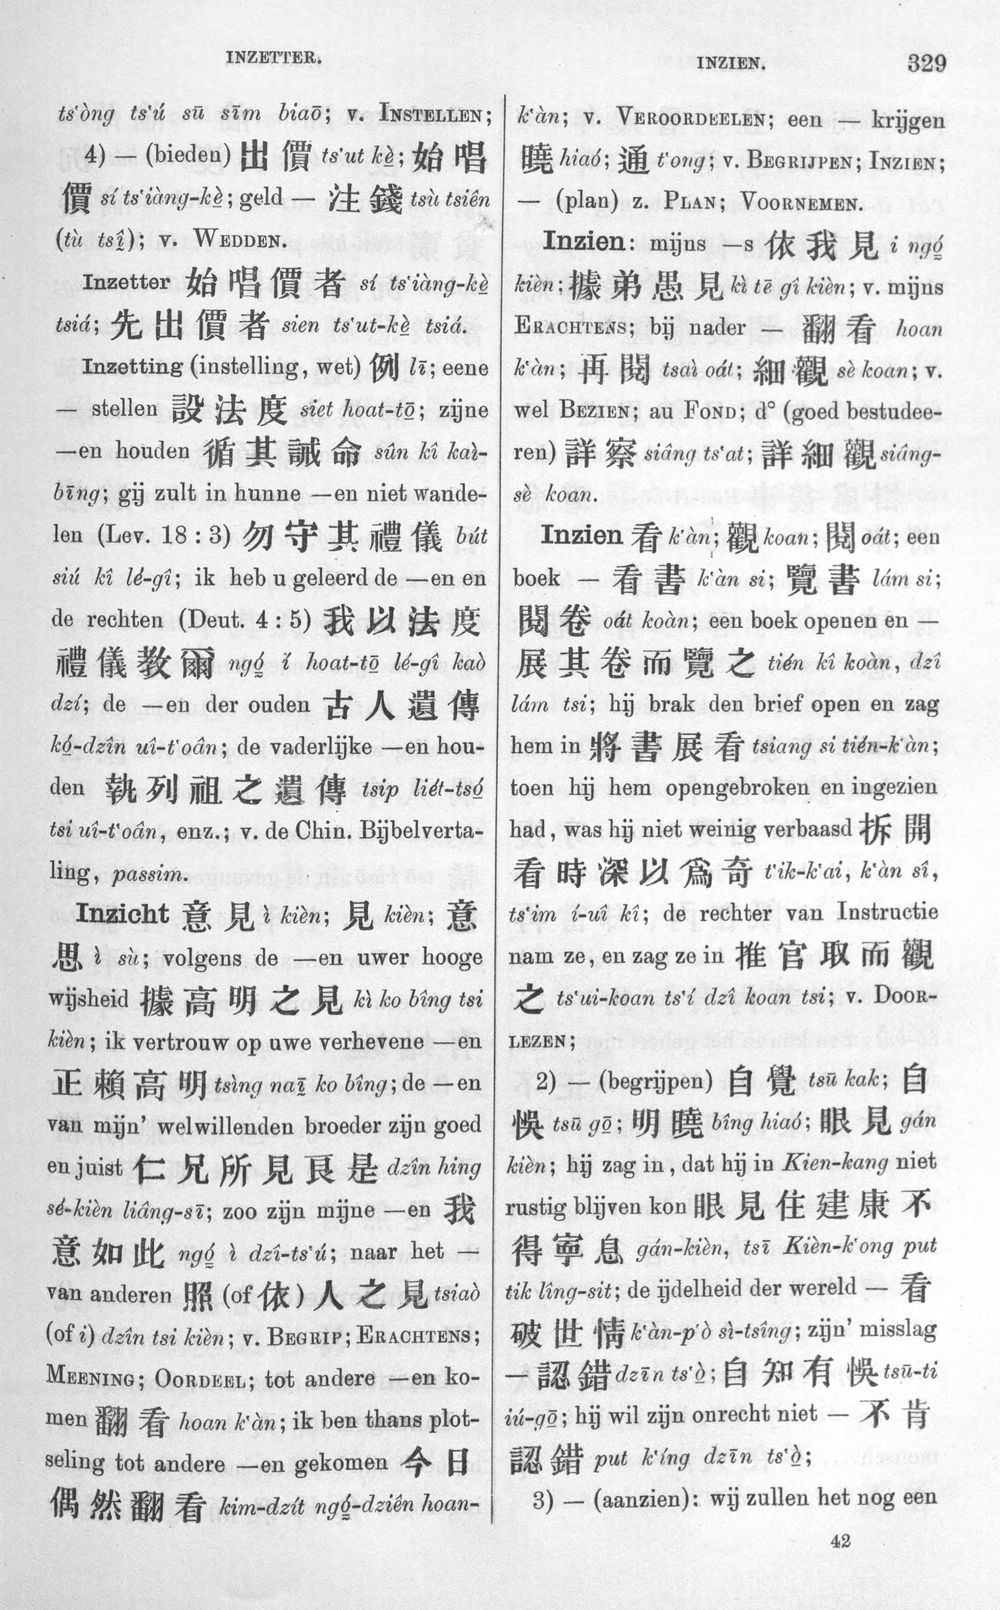 INZETTER.
INZIEN.
329
ts‘òng ts‘ú sū sīm biaō; v. INSTELLEN;
4) — (bieden) 出價 ts‘ut kè̱; 始唱
價 sí ts‘iàng-kè̱; geld — 注錢 tsù tsiên
(tù tsî̱); v. WEDDEN.
Inzetter 始唱價者 sí ts‘iàng-kè̱
tsiá; 先出價者 sien ts‘ut-kè̱ tsiá.
Inzetting (instelling, wet) 例 lī; eene
— stellen 設法度 siet hoat-tō̱; zijne
—en houden 循其誡命 sûn kî kaì-
bīng; gij zult in hunne —en niet wande-
len (Lev. 18 : 3) 勿守其禮儀 bút
siú kî lé-gî; ik heb u geleerd de —en en
de rechten (Deut. 4 : 5) 我以法度
禮儀教爾 ngó̱ í hoat-tō̱ lé-gî kaò
dzí; de —en der ouden 古人遺傳
kó̱-dzîn uî-t‘oân; de vaderlijke —en hou-
den 執列祖之遺傳 tsip liét-tsó̱
tsi uî-t‘oân, enz.; v. de Chin. Bijbelverta-
ling, passim.
Inzicht 意見 ì kièn; 見 kièn; 意
思 ì sù; volgens de —en uwer hooge
wijsheid 據高明之見 kì ko bîng tsi
kièn; ik vertrouw op uwe verhevene —en
正賴高明 tsìng naī̱ ko bîng; de —en
van mijn’ welwillenden broeder zijn goed
en juist 仁兄所見良是 dzîn hing
sé-kièn liâng-sī; zoo zijn mijne —en 我
意如此 ngó̱ ì dzî-ts‘ú; naar het —
van anderen 照 (of 依) 人之見 tsiaò
(of i) dzîn tsi kièn; v. BEGRIP; ERACHTENS;
MEENING; OORDEEL; tot andere —en ko-
men 翻看 hoan k‘àn; ik ben thans plot-
seling tot andere —en gekomen 今日
偶然翻看 kim-dzít ngó̱-dziên hoan-
k‘àn; v. VEROORDEELEN; een — krijgen
曉 hiaó; 通 t‘ong; v. BEGRIJPEN; INZIEN;
— (plan) z. PLAN; VOORNEMEN.
Inzien: mijns —s 依我見 i ngó̱
kièn; 據弟愚見 kì tē gî kièn; v. mijns
ERACHTENS; bij nader — 翻看 hoan
k‘àn; 再閱 tsaì oát; 細觀 sè koan; v.
wel BEZIEN; au FOND; d° (goed bestudee-
ren) 詳察 siâng ts‘at; 詳細觀 siâng-
sè koan.
Inzien 看 k‘àn; 觀 koan; 閱 oát; een
boek — 看書 k‘àn si; 覽書 lám si;
閱卷 oát koàn; een boek openen en —
展其卷而覽之 tién kî koàn, dzî
lám tsi; hij brak den brief open en zag
hem in 將書展看 tsiang si tién-k‘àn;
toen hij hem opengebroken en ingezien
had, was hij niet weinig verbaasd 拆開
看時深以爲奇 t‘ik-k‘ai, k‘àn sî,
ts‘im í-uî kî; de rechter van Instructie
nam ze, en zag ze in 推官取而觀
之 ts‘ui-koan ts‘í dzî koan tsi; v. DOOR-
LEZEN;
2) — (begrijpen) 自覺 tsū kak; 自
悞 tsū gō̱; 明曉 bîng hiaó; 眼見 gán
kièn; hij zag in, dat hij in Kien-kang niet
rustig blijven kon 眼見住建康不
得寧息 gán-kièn, tsī Kièn-k‘ong put
tik lîng-sit; de ijdelheid der wereld — 看
破世情 k‘àn-p‘ò sì-tsîng; zijn’ misslag
— 認錯 dzīn ts‘ò̱; 自知有悞 tsū-ti
iú-gō̱; hij wil zijn onrecht niet — 不肯
認錯 put k‘íng dzīn ts‘ò̱;
3) — (aanzien): wij zullen het nog een
42